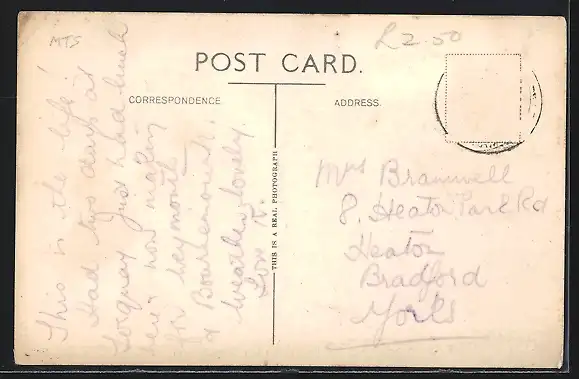 MTS
£2.50
POST CARD.
CORRESPONDENCE
ADDRESS.
This is the life!
Had two days at
Torquay Just had lunch
here, now making
for Weymouth
& Bournemouth.
Weather lovely.
Love K.
THIS IS A REAL PHOTOGRAPH
Mrs Bramwell
8. Heaton Park Rd
Heaton
Bradford
Yorks